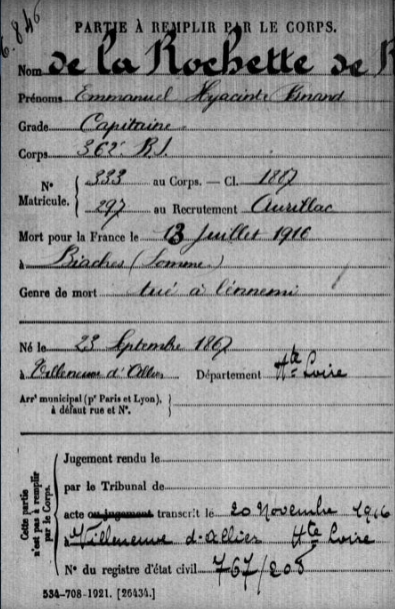 6.846
PARTIE À REMPLIR PAR LE CORPS.
Nom de la Rochette de R
Prénoms Emmanuel Hyacinte
Grade Capitaine
Corps 362e R.I.
N° Matricule. { 333 au Corps. — Cl. 1887
297 au Recrutement Aurillac
Mort pour la France le 13 Juillet 1916
à Biaches (Somme)
Genre de mort tué à l'ennemi
Né le 23 Septembre 1867
à Villeneuve d'Allier Département Hte Loire
Arrt municipal (pr Paris et Lyon), à défaut rue et N°. }
Cette partie n'est pas à remplir par le Corps. {
Jugement rendu le
par le Tribunal de
acte ou jugement transcrit le 20 Novembre 1916
à Villeneuve d'Allier Hte Loire
N° du registre d'état civil 767/205
534-708-1921. [26434.]